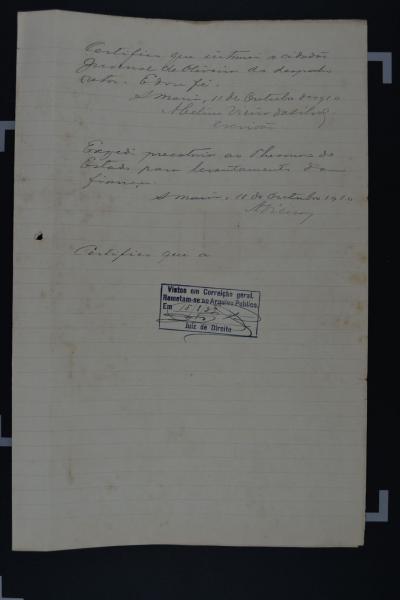 Certifico que intimei o cidadão
Juvenal de Oliveira do despacho
retro. E dou fé.
S. Maria, 11 de Outubro de 1910
Escrivão
Expedi precatorio ao Thesouro do
Estado para levantamento da
fiança.
S. Maria, 11 de Outubro 1910
Certifico que a
Vistos em Correição geral.
Remetam-se ao Arquivo Público.
Em
Juiz de Direito